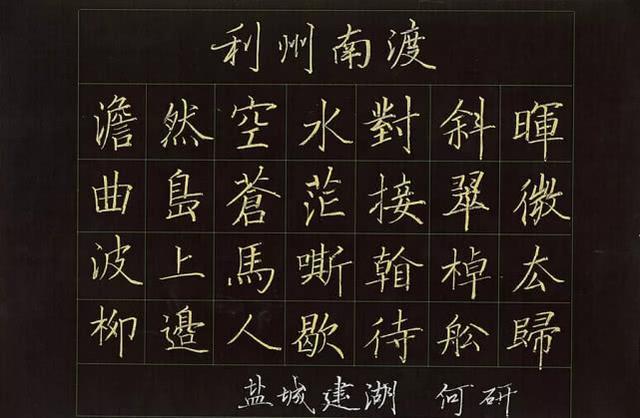 利州南渡
澹然空水對斜暉
曲島蒼茫接翠微
波上馬嘶看棹厺
柳邊人歇待舩歸
盐城建湖 何研